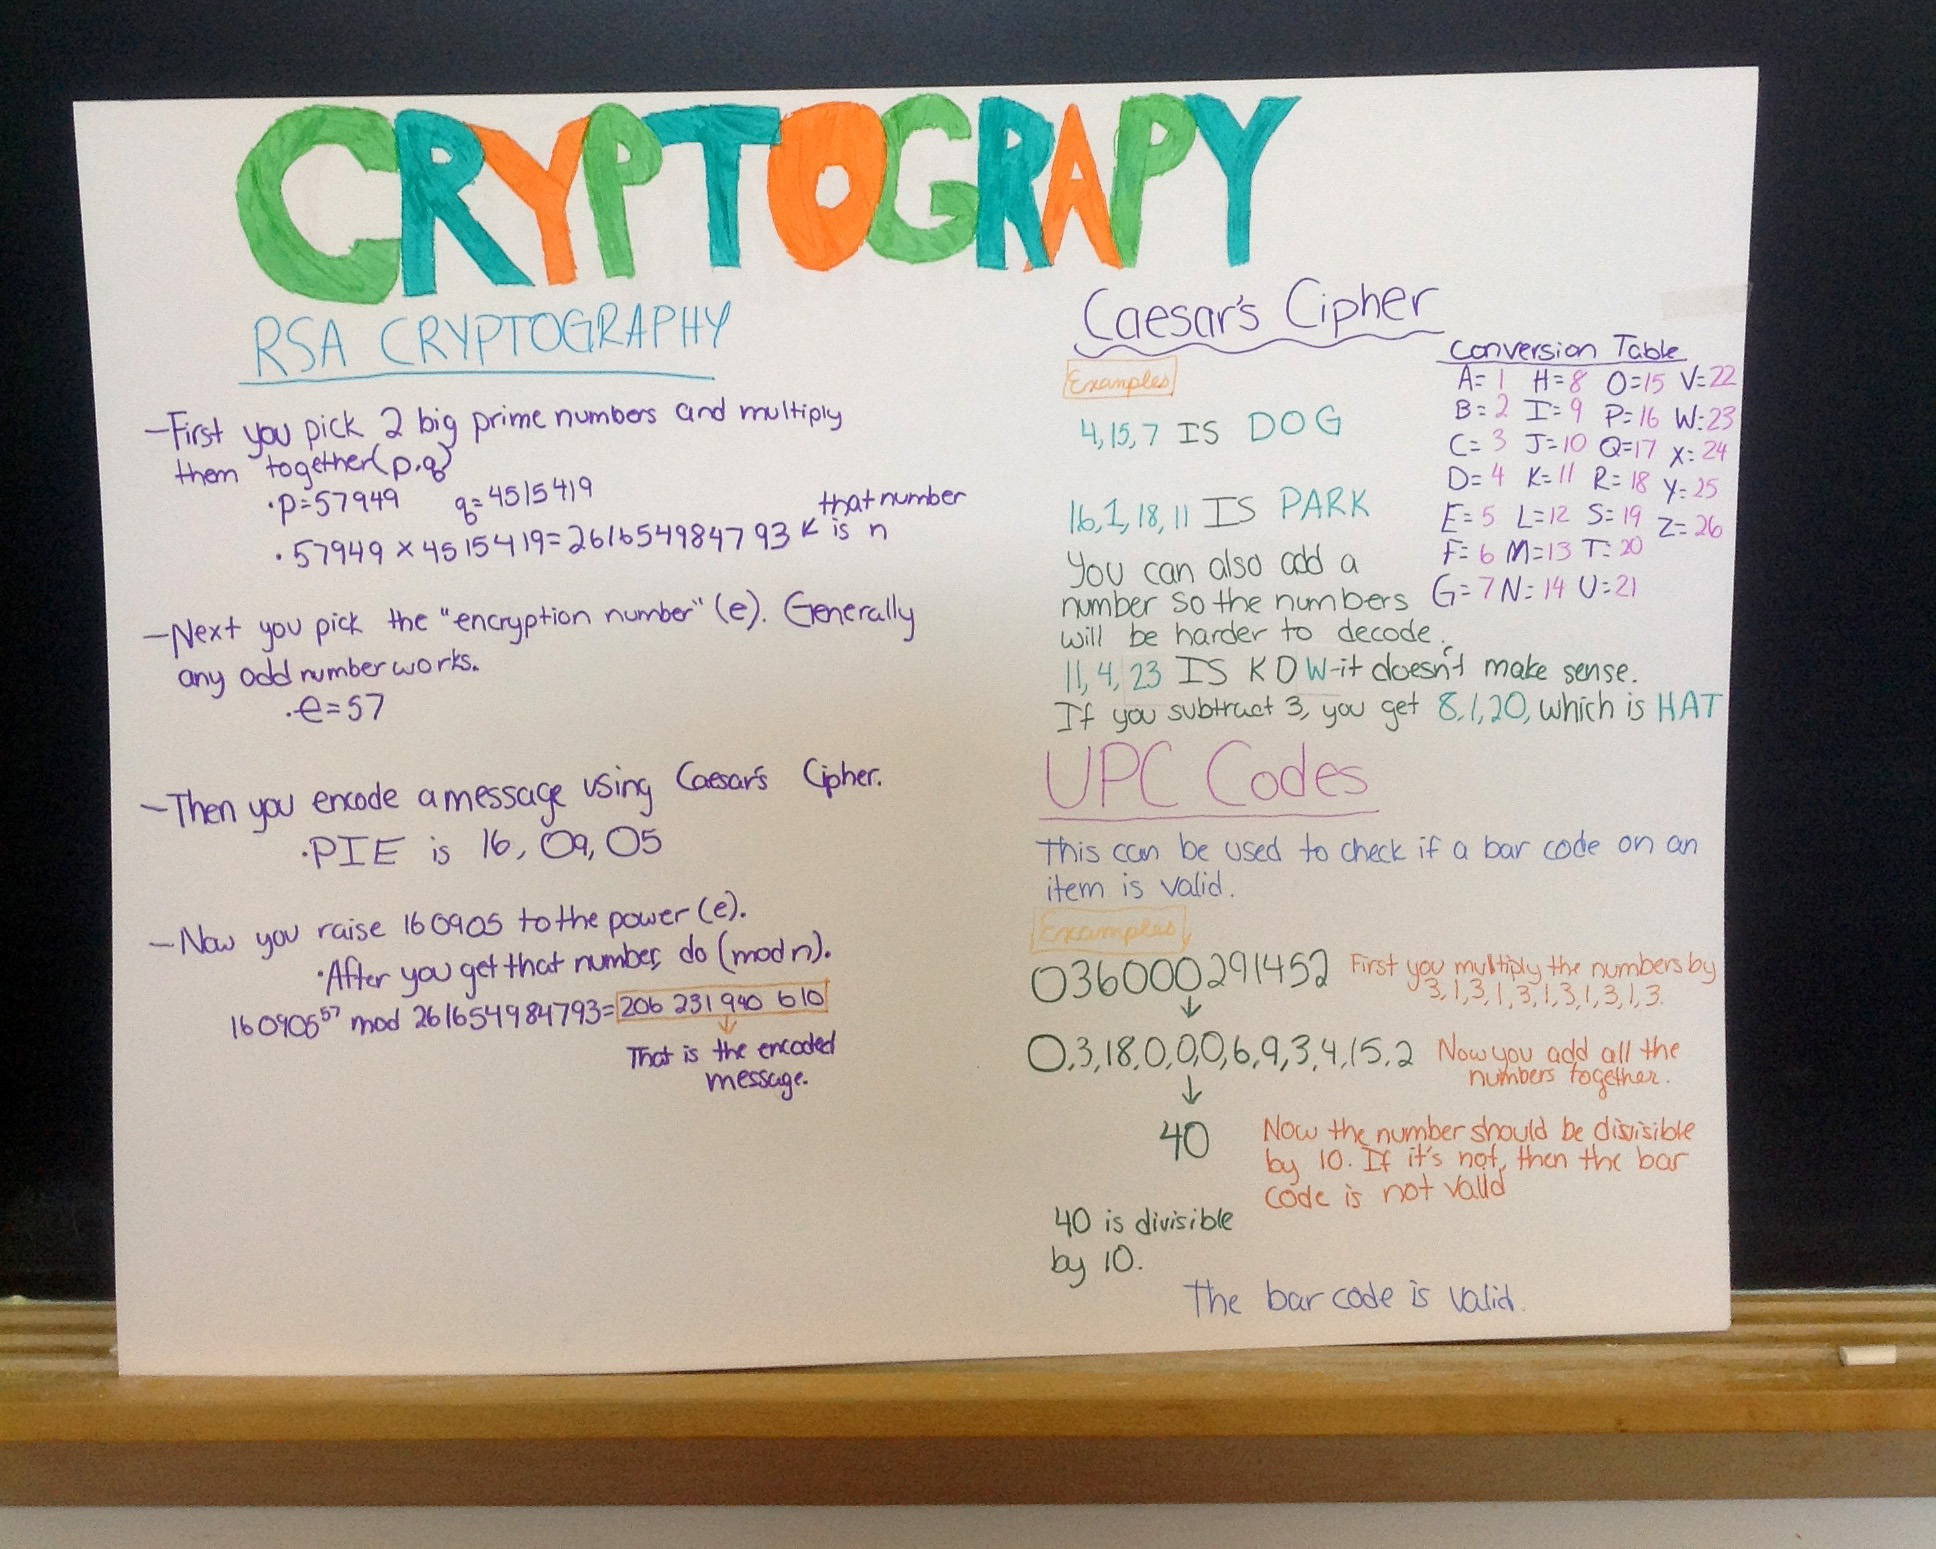 CRYPTOGRAPY
RSA CRYPTOGRAPHY
-First you pick 2 big prime numbers and multiply
them together(p.q)
·p=57949 q=4515419
that number
·57949×4515419=261654984793 ← is n
-Next you pick the "encryption number" (e). Generally
any odd number works.
·e=57
-Then you encode a message using Caesar's Cipher.
·PIE is 16, 09, 05
-Now you raise 160905 to the power (e).
·After you get that number, do (mod n).
160905⁵⁷ mod 261654984793=206 231 940 610
That is the encoded
message.
Caesar's Cipher
Examples
4,15,7 IS DOG
16,1,18,11 IS PARK
You can also add a
number so the numbers
will be harder to decode.
11,4,23 IS KDW-it doesn't make sense.
If you subtract 3, you get 8,1,20, which is HAT
Conversion Table
A=1 H=8 O=15 V=22
B=2 I=9 P=16 W=23
C=3 J=10 Q=17 X=24
D=4 K=11 R=18 Y=25
E=5 L=12 S=19 Z=26
F=6 M=13 T=20
G=7 N=14 U=21
UPC Codes
This can be used to check if a bar code on an
item is valid.
Examples
036000291452 First you multiply the numbers by
3,1,3,1,3,1,3,1,3,1,3.
↓
0,3,18,0,0,0,6,9,3,4,15,2 Now you add all the
numbers together.
↓
40 Now the number should be divisible
by 10. If it's not, then the bar
code is not valid
40 is divisible
by 10.
The bar code is valid.